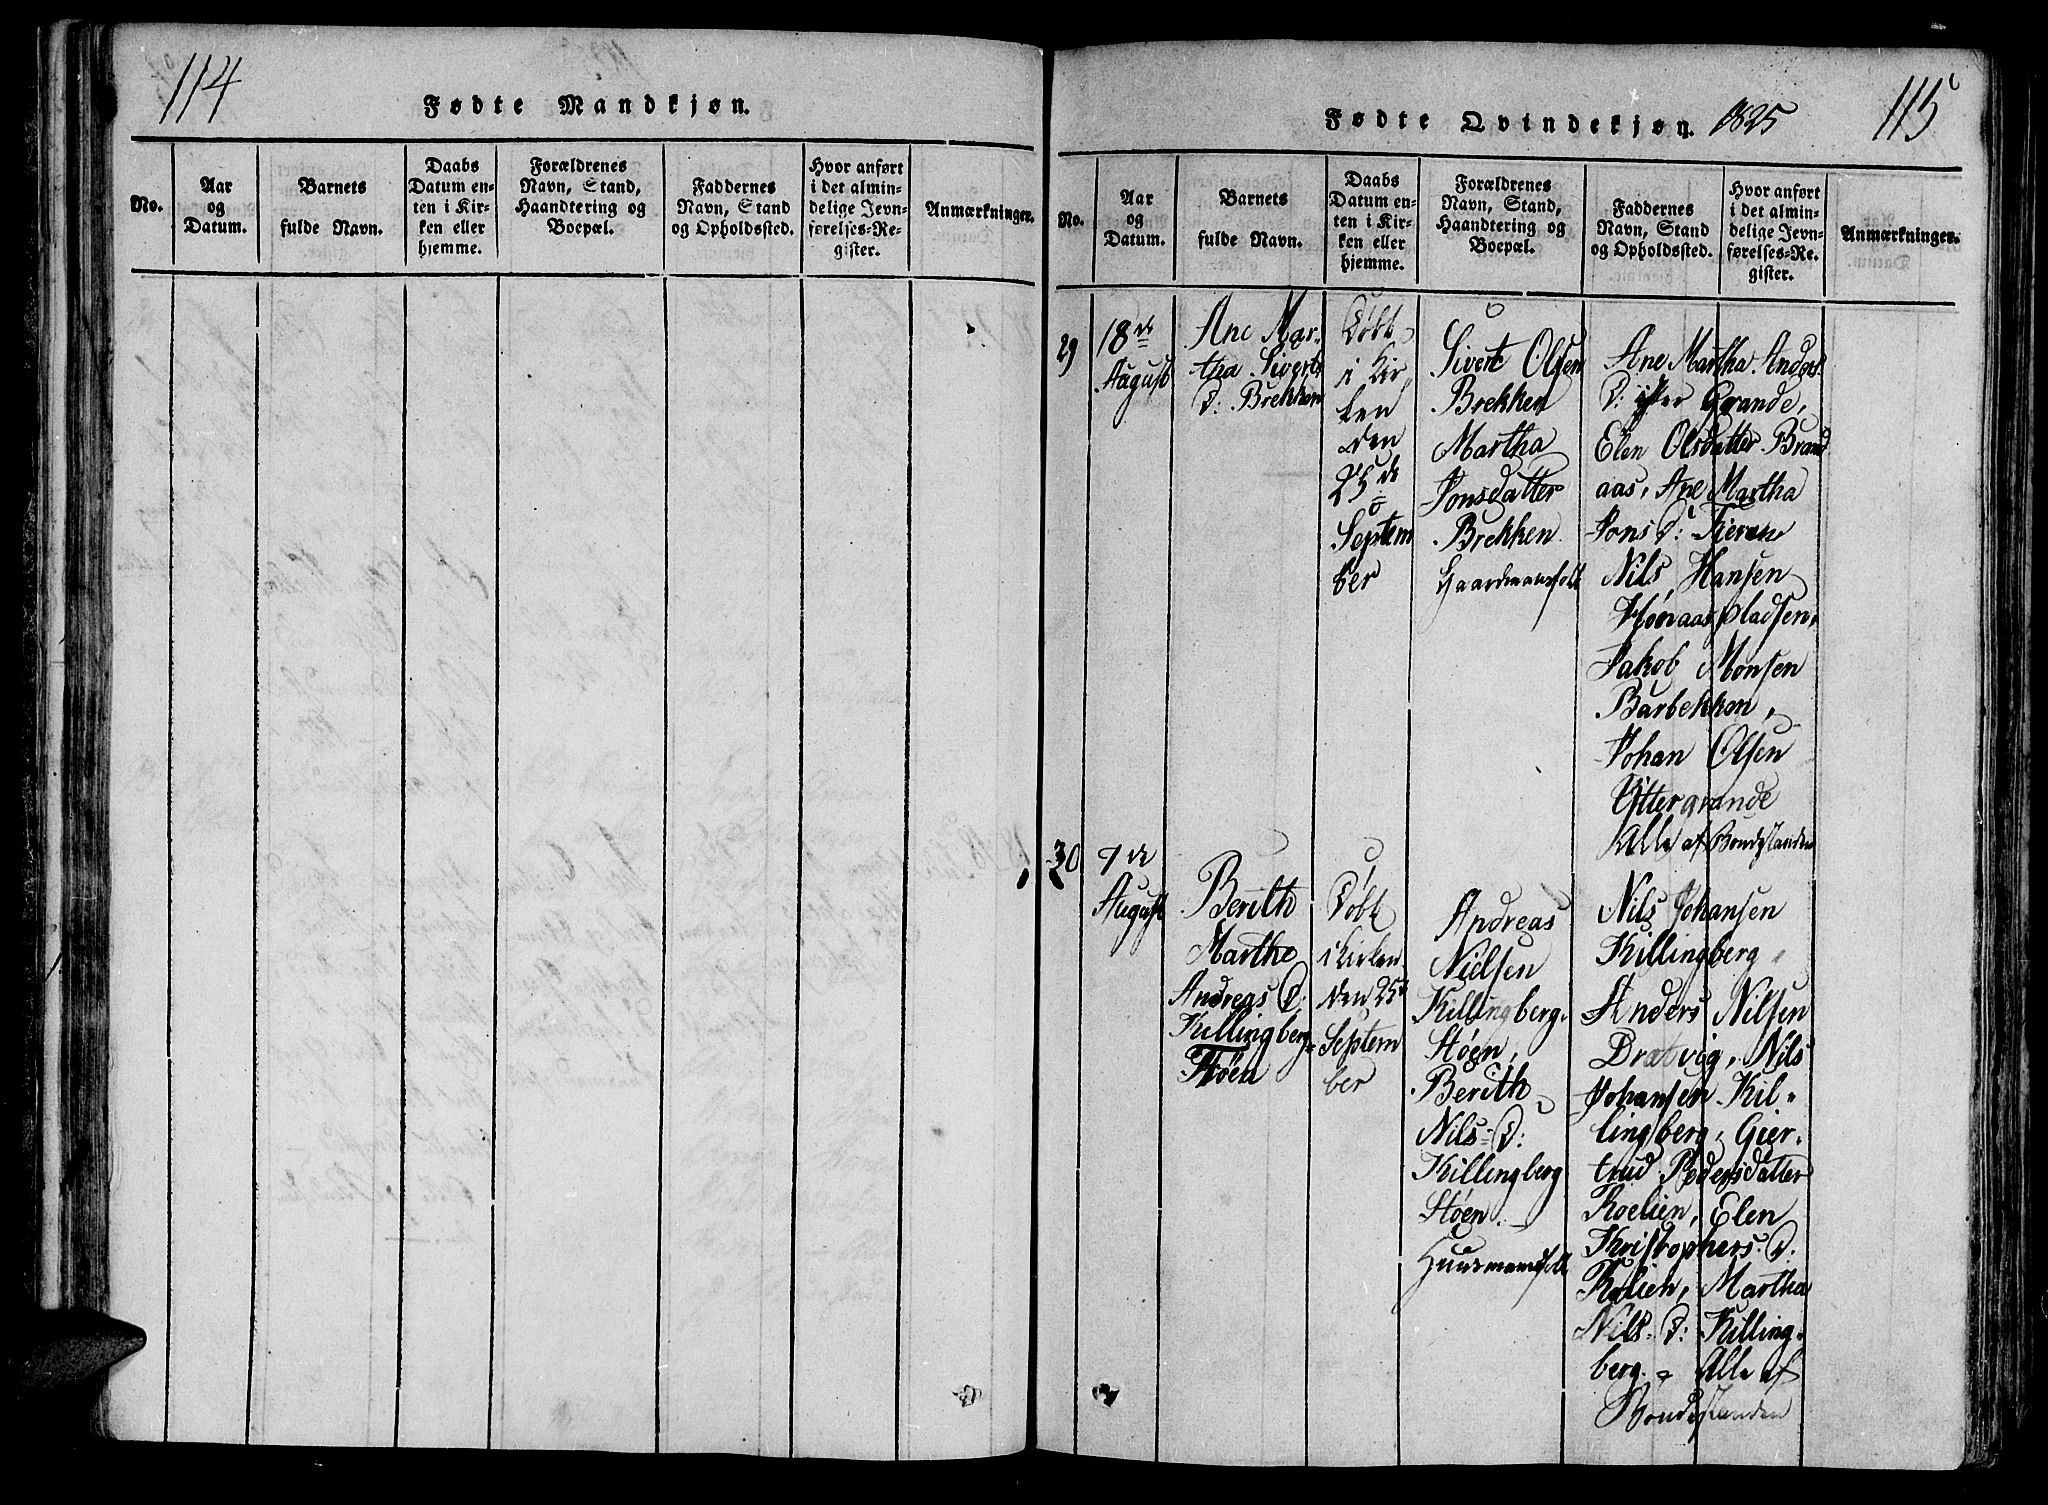 114
Fødte Mandkjøn.
No.
Aar
og
Datum.
Barnets
fulde Navn.
Daabs
Datum en-
ten i Kir-
ken eller
hjemme.
Forældrenes
Navn, Stand,
Haandtering og
Boepæl.
Faddernes
Navn, Stand
og Opholdssted.
Hvor anført
i det almin-
delige Jevn-
førelses-Re-
gister.
Anmærkninger.
Fødte Qvindekjøn. 1825
115
No.
Aar
og
Datum.
Barnets
fulde Navn.
Daabs
Datum en-
ten i Kir-
ken eller
hjemme.
Forældrenes
Navn, Stand,
Haandtering og
Boepæl.
Faddernes
Navn, Stand
og Opholdssted.
Hvor anført
i det almin-
delige Jevn-
førelses-Re-
gister.
Anmærkninger.
29
18de
August
Ane Mar-
tha Siverts
D: Brekken
Døbt
i Kir
ken
den
25de
Septem
ber
Sivert Olsen
Brekken
Martha
Jonsdatter
Brekken
Gaardmansfolk
Ane Martha Anders
D: Grande,
Elen Olsdatter Brand
aas, Ane Martha
Jons D:
Nils Hansen
Pladsen,
Jakob Monsen
Barbekken,
Johan Olsen
Yttergrande
Alle af Bondestanden
30
7de
August
Berith
Marthe
Andreas D:
Killingberg-
Støen
Døbt
i Kirken
den 25de
Septem
ber
Andreas
Nielsen
Killingberg-
Støen,
Berith
Nils-D:
Killingberg
Støen.
Huusmandsfolk
Nils Johansen
Killingberg
Anders Nilsen
Dratvig, Nils
Johansen Kil-
lingberg, Gier-
trud Pedersdatter
Roelien, Elen
Kristophers. D.
Rolien, Martha
Nils. D: Killing-
berg. Alle af
Bondestanden